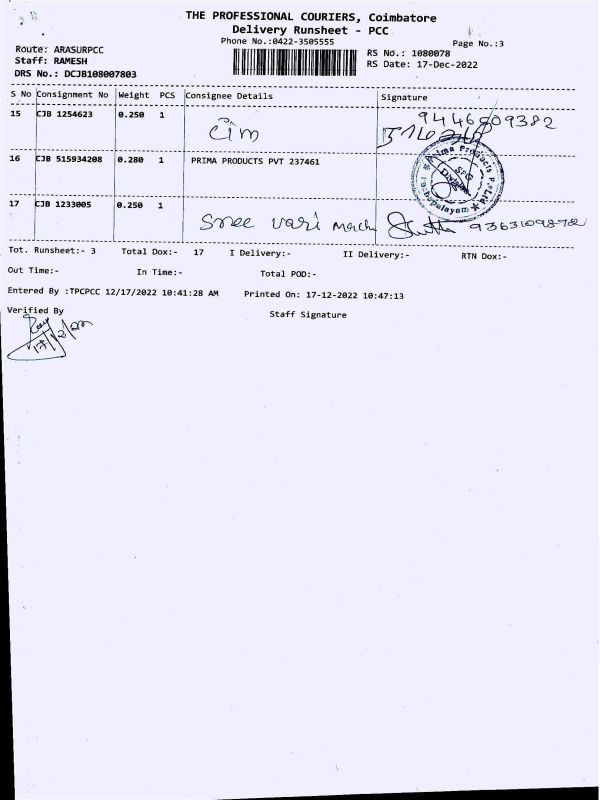 THE PROFESSIONAL COURIERS, Coimbatore
Delivery Runsheet - PCC
Phone No.:0422-3505555
Page No.:3
Route: ARASURPCC
RS No.: 1080078
Staff: RAMESH
RS Date: 17-Dec-2022
DRS No.: DCJB108007803
S No Consignment No Weight PCS Consignee Details Signature
15 CJB 1254623 0.250 1 Cim 9446809382
16 CJB 515934208 0.280 1 PRIMA PRODUCTS PVT 237461
Prima Products P
17 CJB 1233005 0.250 1 Sree vari 9363109872
Tot. Runsheet:- 3 Total Dox:- 17 I Delivery:- II Delivery:- RTN Dox:-
Out Time:- In Time:- Total POD:-
Entered By :TPCPCC 12/17/2022 10:41:28 AM Printed On: 17-12-2022 10:47:13
Verified By Staff Signature
17/12/22